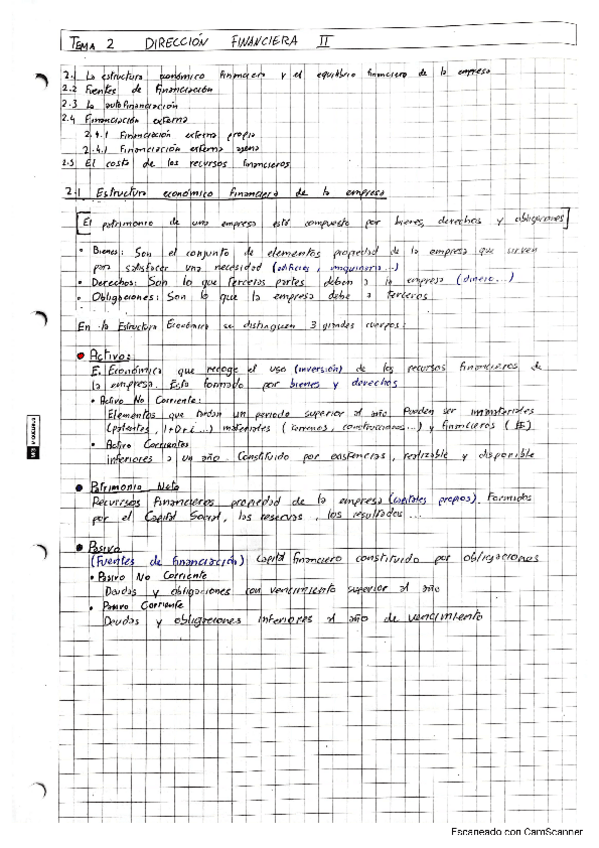 TEMA 2 DIRECCIÓN FINANCIERA II
2.1 La estructura económico financiera y el equilibrio financiero de la empresa
2.2 Fuentes de Financiación
2.3 La autofinanciación
2.4 Financiación externa
2.4.1 Financiación externa propia
2.4.1 Financiación externa ajena
2.5 El costo de los recursos financieros
2.1 Estructura económico financiera de la empresa
El patrimonio de una empresa está compuesto por bienes, derechos y obligaciones
• Bienes: Son el conjunto de elementos propiedad de la empresa que sirven
para satisfacer una necesidad (edificios, maquinaria...)
• Derechos: Son lo que terceras partes deben a la empresa (dinero...)
• Obligaciones: Son lo que la empresa debe a terceros
En la Estructura Económica se distinguen 3 grandes cuerpos:
• Activo:
E. Económica que recoge el uso (inversión) de los recursos financieros de
la empresa. Esta formado por bienes y derechos
• Activo No Corriente:
Elementos que tardan un periodo superior al año. Pueden ser inmateriales
(patentes, I+D+i...) materiales (terrenos, construcciones...) y financieros
• Activo Corrientes
inferiores a un año. Constituido por existencias, realizable y disponible
• Patrimonio Neto
Recursos Financieros propiedad de la empresa (capitales propios). Formados
por el Capital Social, las reservas, los resultados...
• Pasivo
(Fuentes de financiación) Capital financiero constituido por obligaciones
• Pasivo No Corriente
Deudas y obligaciones con vencimiento superior al año
• Pasivo Corriente
Deudas y obligaciones inferiores al año de vencimiento
Escaneado con CamScanner